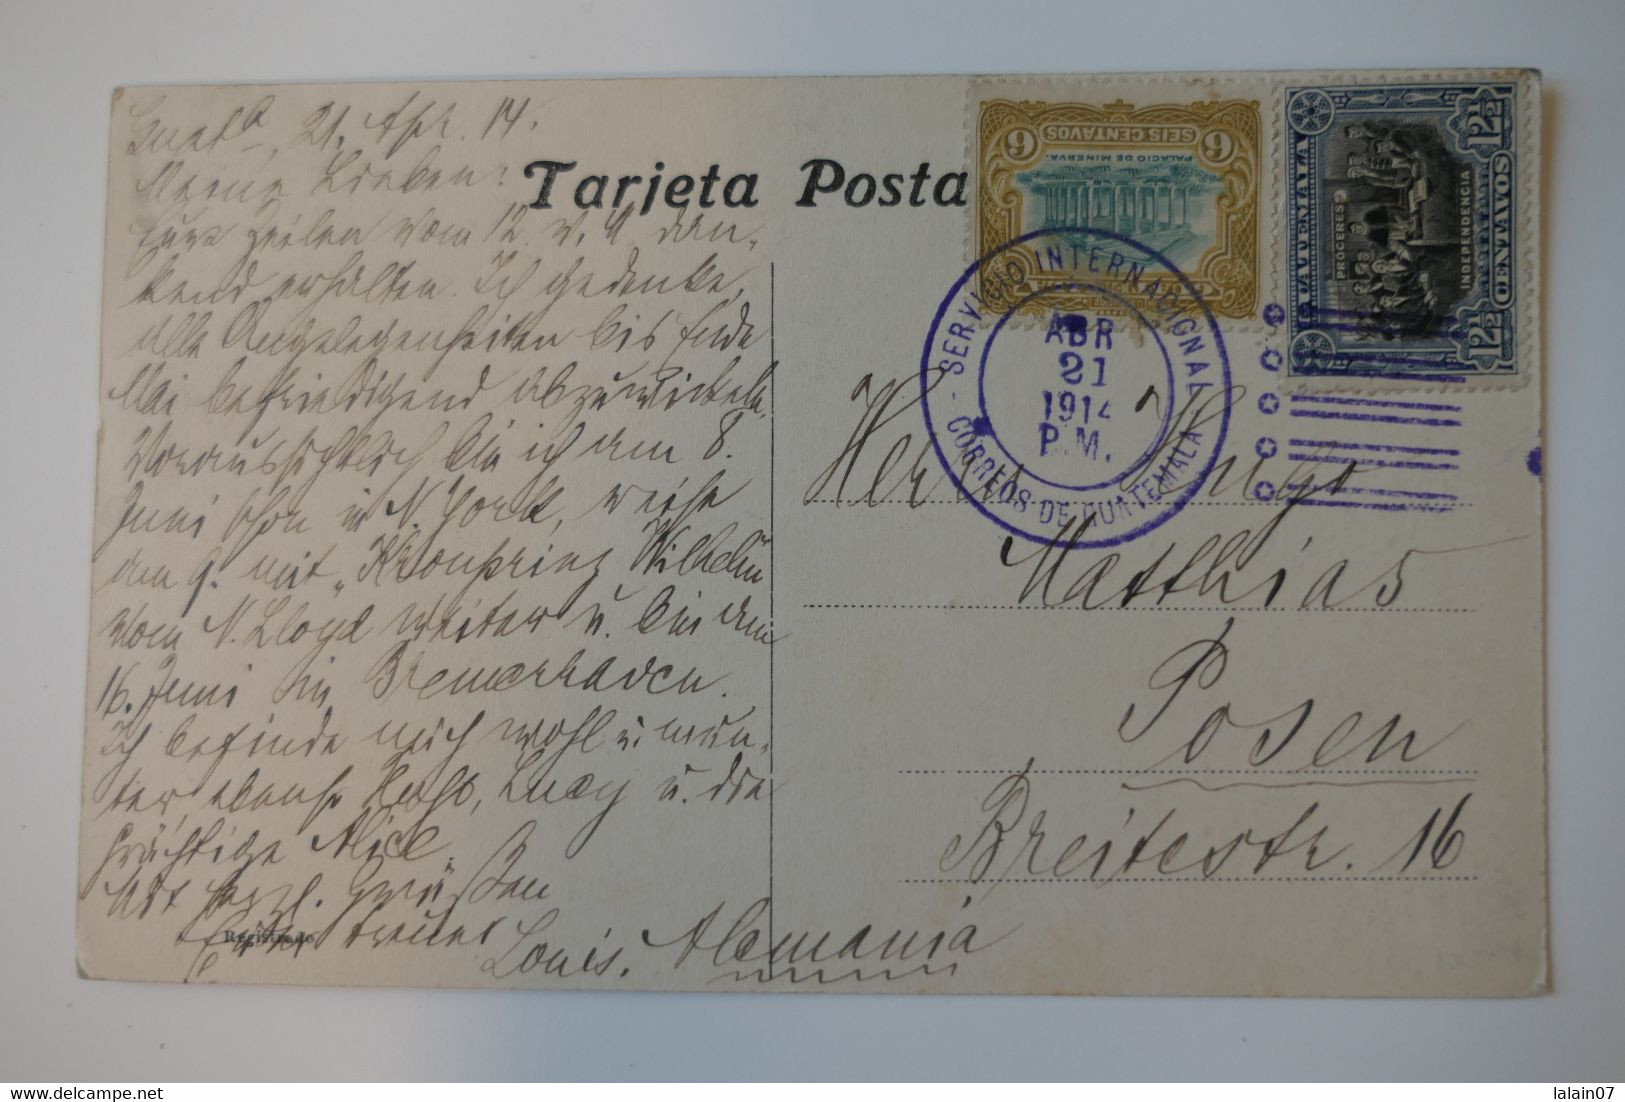 Guat^a, 21. Apr. 14.
Meine Lieben!
Eure Zeilen vom 12. v. M. dan-
kend erhalten. Ich gedenke,
alle Angelegenheiten bis Ende
Mai befriedigend abzuwickeln.
Voraussichtlich bin ich am 8.
Juni schon in N. York, reise
am 9. mit "Kronprinz Wilhelm
vom N. Lloyd weiter u. bin am
16. Juni in Bremerhaven.
Ich befinde mich wohl u. mun-
ter ebenso, Lucy u. die
prächtige Alice.
Mit herzl. Grüßen
Euer treuer
Louis.
Registrado
Tarjeta Posta
6 SEIS CENTAVOS 6
PALACIO DE MINERVA.
GUATEMALA
PROCERES
INDEPENDENCIA
12½ CENTAVOS 12½
SERVICIO INTERNACIONAL
ABR
21
1914
P.M.
CORREOS DE GUATEMALA
Herrn Hugo
Matthias
Posen
Breitestr. 16
Alemania
delcampe.net
lalain07